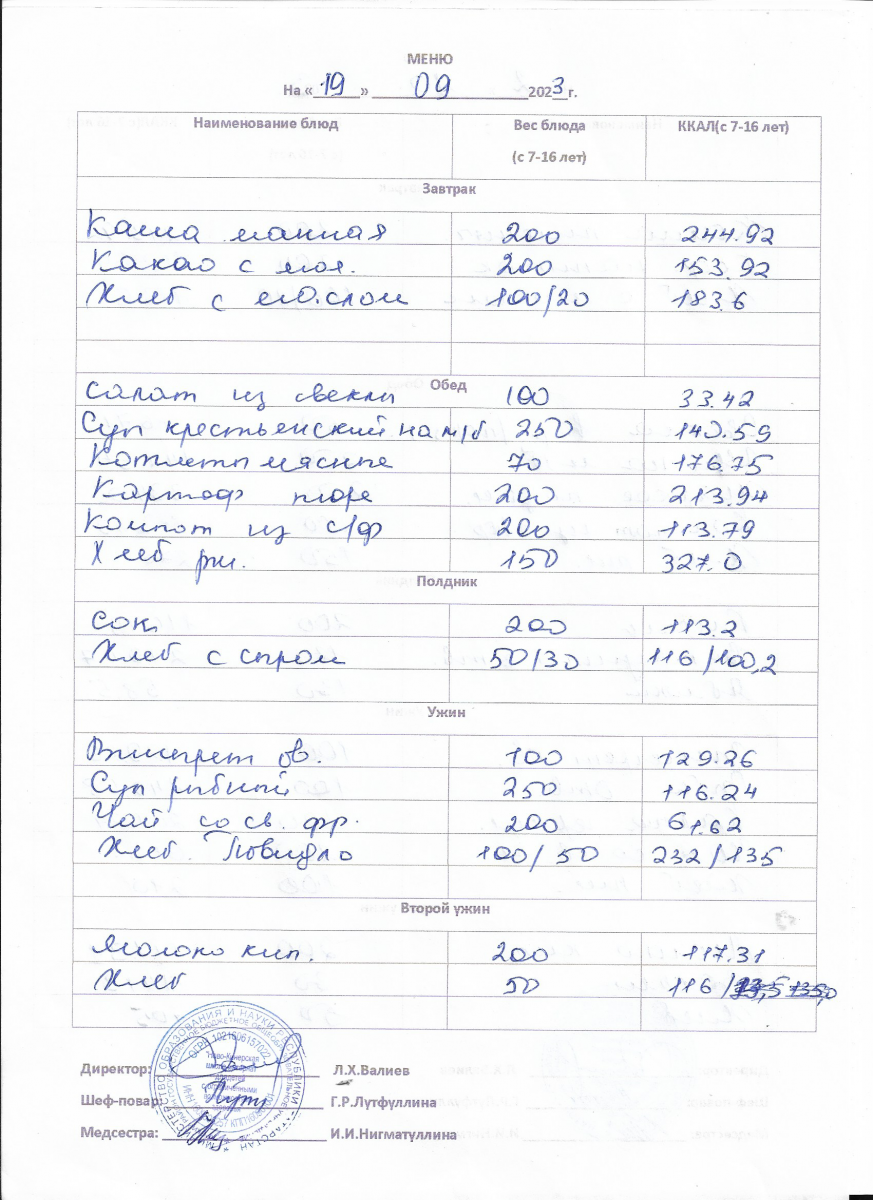 МЕНЮ
На «19» 09 2023 г.
Наименование блюд Вес блюда (с 7-16 лет) ККАЛ(с 7-16 лет)
Завтрак
Каша манная 200 244.92
Какао с мол. 200 153.92
Хлеб с м.слом 100/20 183.6
Обед
Салат из свеклы 100 33.42
Суп крестьенский на м/б 250 140.59
Котлеты мясные 70 176.75
Картоф пюре 200 213.94
Компот из с/ф 200 113.79
Хлеб рж. 150 327.0
Полдник
Сок 200 113.2
Хлеб с сыром 50/30 116/100,2
Ужин
Винегрет ов. 100 129.26
Суп рыбный 250 116.24
Чай со св. фр. 200 61.62
Хлеб. Повидло 100/50 232/135
Второй ужин
Молоко кип. 200 117.31
Хлеб 50 116/
Директор: Л.Х.Валиев
Шеф-повар: Г.Р.Лутфуллина
Медсестра: И.И.Нигматуллина
ОГРН 1021606157022